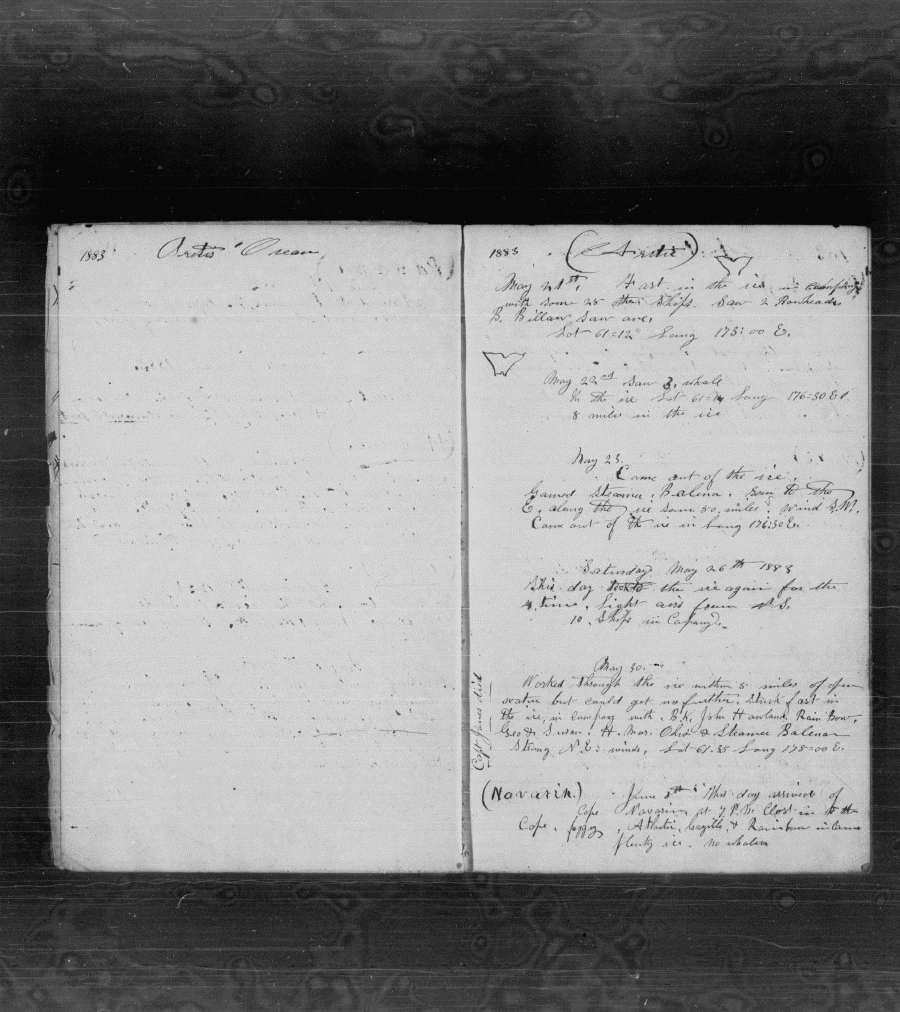 1883 Arctic Ocean
1883 (Arctic)
May 21st, Fast in the ice in company
with som 25 other Ships. Saw 2 Bowheads.
B. Billow saw one.
Lat 61=12 Long 175:00 E.
May 22nd Saw 3, whale
In the ice Lat 61=14 Long 176=30 E
8 miles in the ice
May 23.
Came out of the ice
Gamed Steamer, Balena. to the
E. along the ice som 50 miles. Wind S.W.
Came out of the ice in Long 176:30 E.
Saturday May 26th 1883
This day took to the ice again for the
4 time. Light airs from S.
10 Ships in Company.
May 30.
Worked through the ice within 5 miles of open
water but could get no further. Stuck fast in
the ice, in Company with, B.K, John Howland, Rain Bow,
Geo & Susan, H. Mar. Ohio & Steamer Balenar
Strong N.E: winds, Lat 61:35 Long 178=00 E.
Capt Jones died
(Navarin) June 5th This day arrived of
Cape Navarin, at 7 P.M. Close in to the
Cape. foggy, Atlantic, & Rainbow in
plenty ice. No whales